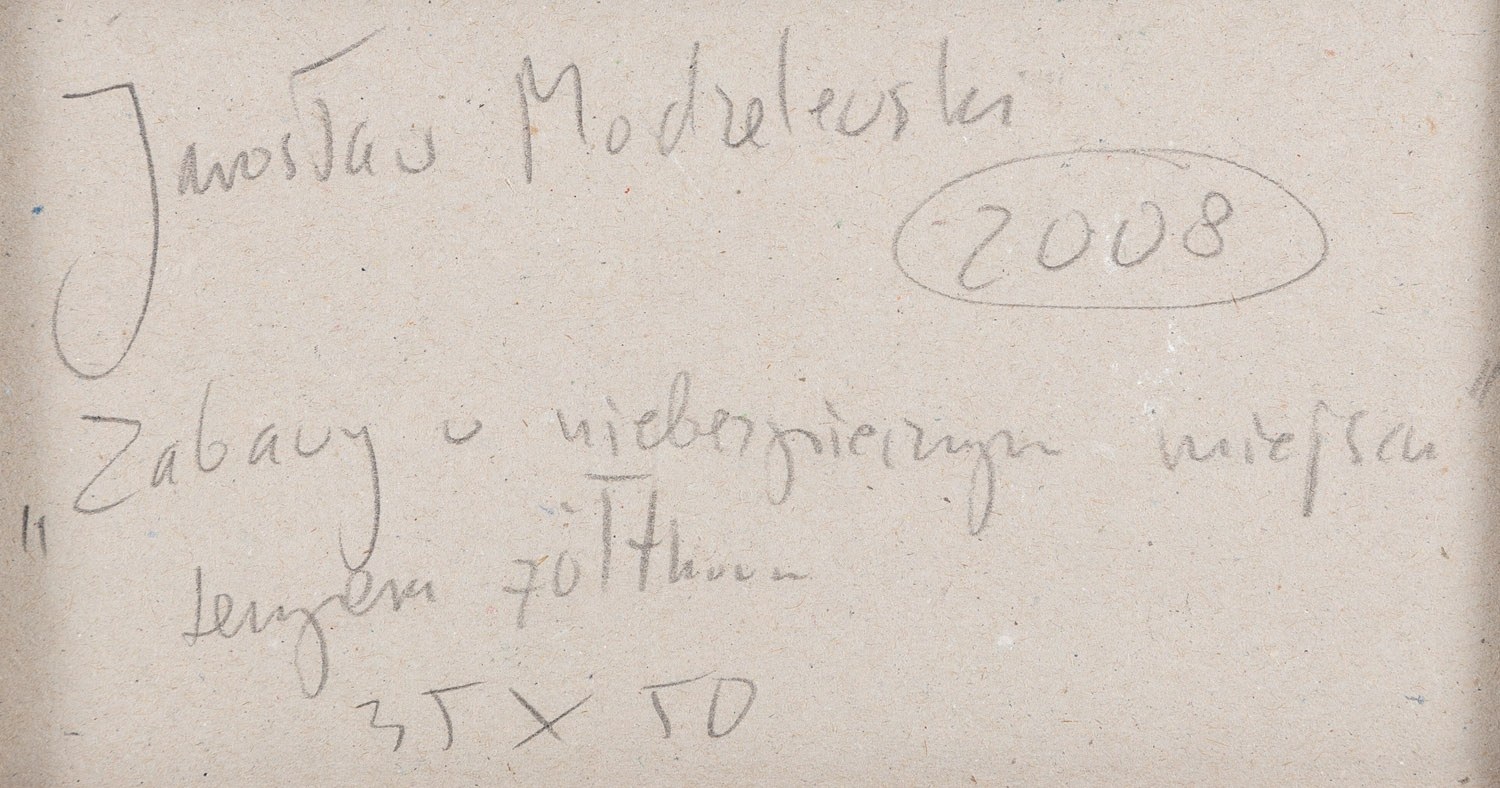 Jarosław Modzelewski
2008
„Zabawy w niebezpiecznym miejscu"
tempera żółtkowa
35 X 50